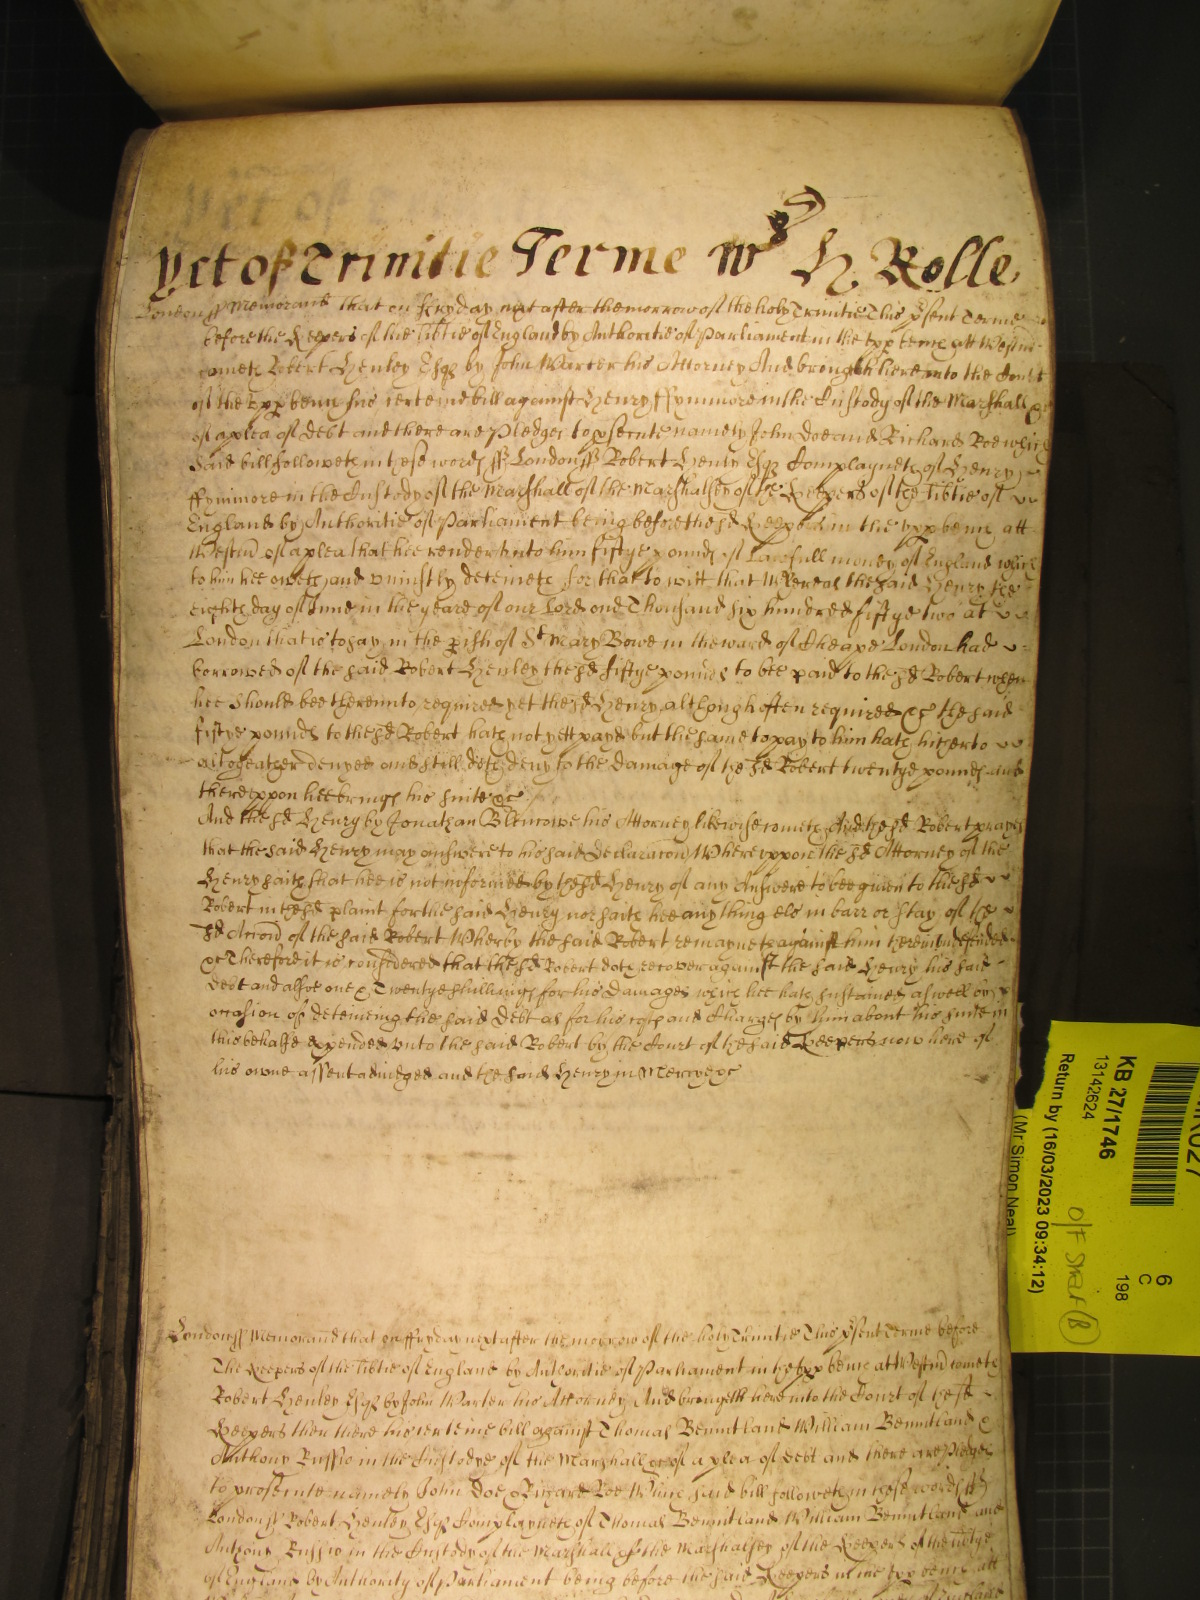 Yet of Trinitie Terme Ws H Rolle
London ss Memorand that on ffryday next after the morrow of the holy Trinitie This psent Terme
before the Keepers of the libtie of England by Authoritie of Parliament in the vpp bench att Westm
cometh Robert Henley Esqr by John Warter his Attorney And brought here into the Court
of the vpp bench his certeine bill against Henry ffynmore in the Custody of the Marshall &c
of a plea of Debt and there are Pledges to psecute namely John Doe and Richard Roe which
said bill followeth in these words ss London ss Robert Henly Esqr Complayneth of Henry
ffynmore in the Custody of the Marshall of the Marshalsey of the Keepers of the libtie of
England by Authoritie of Parliament being before the sd Keepers in the vpp bench att
Westm of a plea that hee render vnto him fiftye pounds of lawfull money of England which
to him hee oweth and vniustly deteineth for that to witt that Whereas the said Henry the
eighth day of June in the yeare of our Lord one Thousand six hundred fiftye two at
London that is to say in the pish of St Mary Bowe in the ward of Cheape London had
borrowed of the said Robert Henley the sd fiftye pounds to bee paid to the sd Robert when
hee should bee therevnto required yet the sd Henry although often required &c the said
fiftye pounds to the sd Robert hath not yett payd but the same to pay to him hath hitherto
altogeather denyed and still doth deny to the damage of the sd Robert twentye pounds and
therevppon hee brings his suite &c
And the sd Henry by Jonathan Blenowe his Attorney likewise cometh And the sd Robert prayes
that the said Henry may answere to his said Declaracon Wherevppon the sd Attorney of the
Henry saith that hee is not informed by the sd Henry of any Answere to bee given to the sd
Robert in the sd plaint for the said Henry nor saith hee any thing els in barr or stay of the
sd Accon of the said Robert Wherby the said Robert remayneth against him therein vndefended
&c Therefore it is considered that the sd Robert doth recover against the said Henry his said
debt and alsoe one & Twentye shillings for his Damages which hee hath sustained aswell by
occasion of deteineing the said Debt as for his costs and Charges by him about his suite in
this behalfe expended vnto the said Robert by the Court of the said Keepers now here of
his owne assent adiudged and the said Henry in Mercye &c
London ss Memorand that on ffryday next after the morrow of the holy Trinitie This psent Terme before
The Keepers of the libtie of England by Authoritie of Parliament in the vpp bench att Westm cometh
Robert Henley Esqr by John Warter his Attorney And brought here into the Court of the sd
Keepers then there his certeine bill against Thomas Benntland William Benntland &
Anthony Russio in the Custodye of the Marshall &c of a plea of Debt and there are Pledges
to prosecute namely John Doe & Richard Roe Which said bill followeth in these words ss
London ss Robert Henley Esqr Complayneth of Thomas Benntland William Benntland and
Anthony Russio in the Custody of the Marshall of the Marshalsey of the Keepers of the libtye
of England by Authority of Parliament being before the said Keepers in the vpp bench att
KB 27/1746
13142624
Return by (16/03/2023 09:34:12)
(Mr Simon Neal)
6
C
198